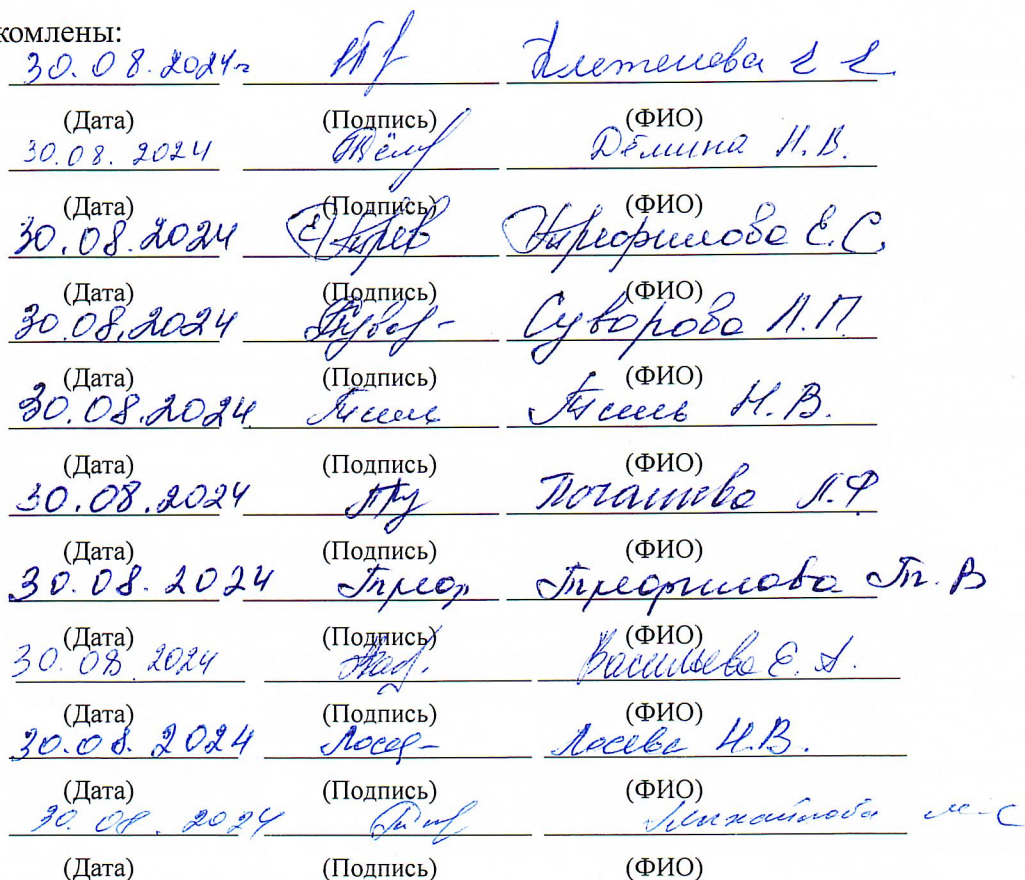 комлены:
30.08.2024г Плетенева
(Дата) (Подпись) (ФИО)
30.08.2024 Дёмина Н.В.
(Дата) (Подпись) (ФИО)
30.08.2024 Трефилова Е.С.
(Дата) (Подпись) (ФИО)
30.08.2024 Суворова Л.П.
(Дата) (Подпись) (ФИО)
30.08.2024 Н.В.
(Дата) (Подпись) (ФИО)
30.08.2024 Л.Ф
(Дата) (Подпись) (ФИО)
30.08.2024 Треф Трефилова Т.В
(Дата) (Подпись) (ФИО)
30.08.2024 Васильева Е.А.
(Дата) (Подпись) (ФИО)
30.08.2024 Лосева Н.В.
(Дата) (Подпись) (ФИО)
30.08.2024 Михайлова М.С
(Дата) (Подпись) (ФИО)